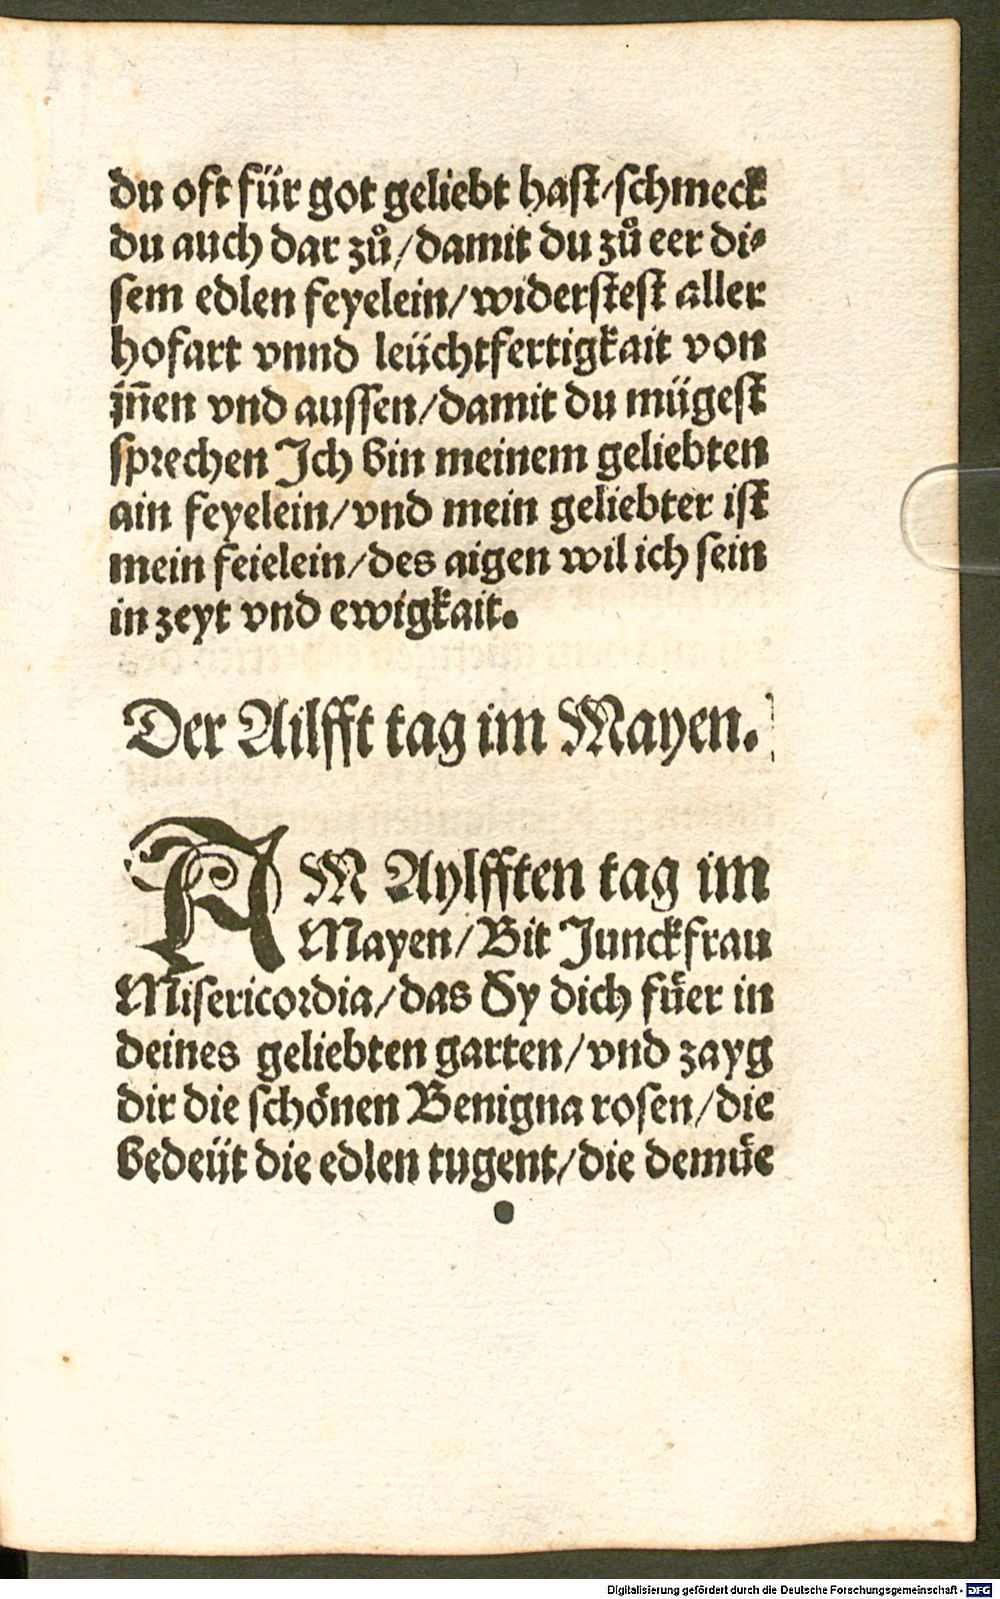 du oft für got geliebt hast/schmeck
du auch dar zů/damit du zů eer di⸗
sem edlen feyelein/widerstest aller
hofart vnnd leüchtfertigkait von
jn̄en vnd aussen/damit du mügest
sprechen Ich bin meinem geliebten
ain feyelein/vnd mein geliebter ist
mein feielein/des aigen wil ich sein
in zeyt vnd ewigkait.
Der Ailfft tag im Mayen.
AM Aylfften tag im
Mayen/Bit Junckfrau
Misericordia/das Sy dich fuͤer in
deines geliebten garten/vnd zayg
dir die schönen Benigna rosen/die
bedeüt die edlen tugent/die demuͤe
Digitalisierung gefördert durch die Deutsche Forschungsgemeinschaft - DFG